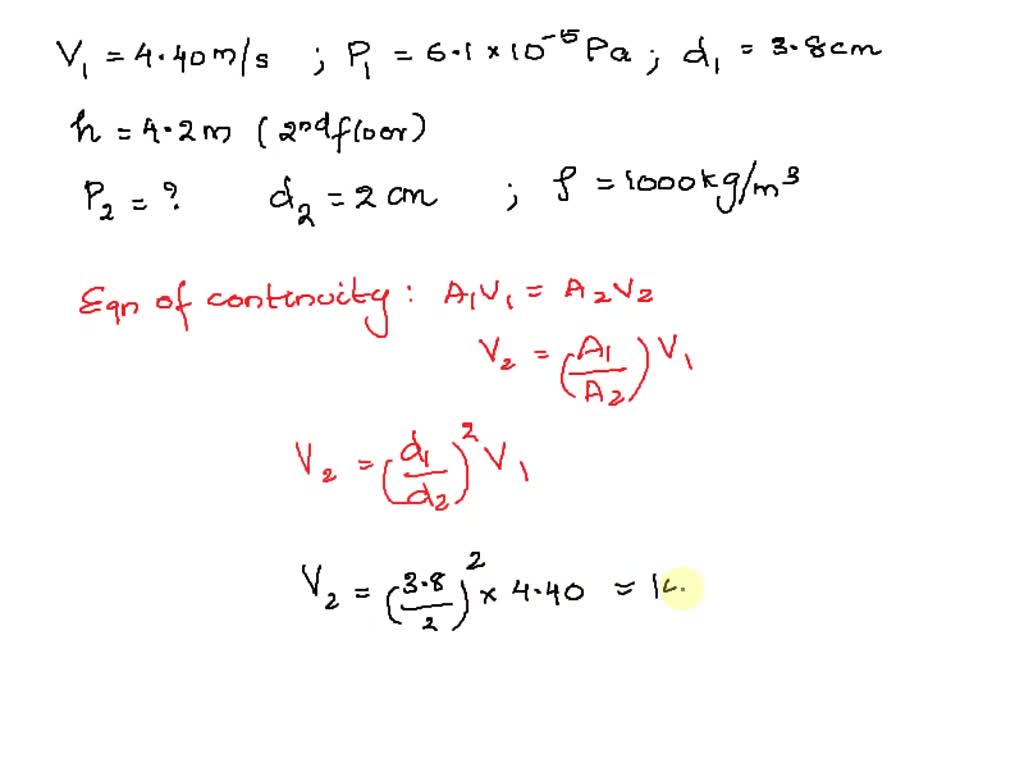 V₁ = 4.40 m/s ; P₁ = 6.1 × 10⁻⁵ Pa ; d₁ = 3.8 cm
h = 4.2 m ( 2nd floor)
P₂ = ? d₂ = 2 cm ; ρ = 1000 kg/m³
Eqn of continuity : A₁V₁ = A₂V₂
V₂ = (A₁/A₂) V₁
V₂ = (d₁/d₂)² V₁
V₂ = (3.8/2)² × 4.40 ≈ 1